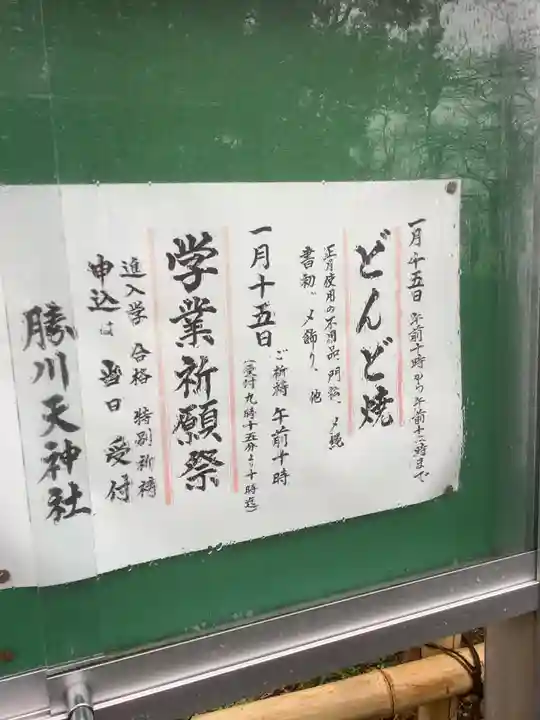 一月十五日 午前十時から午前十二時まで
どんど焼
正月使用の不用品、門松、〆縄
書初、〆飾り、他
一月十五日 ご祈祷 午前十時
(受付 九時十五分より十時迄)
学業祈願祭
進入学 合格 特別祈祷
申込は 当日 受付
勝川天神社